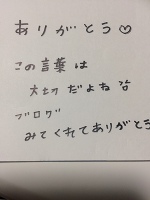 ありがとう♡
この言葉は
大切だよね
ブログ
みてくれてありがとう